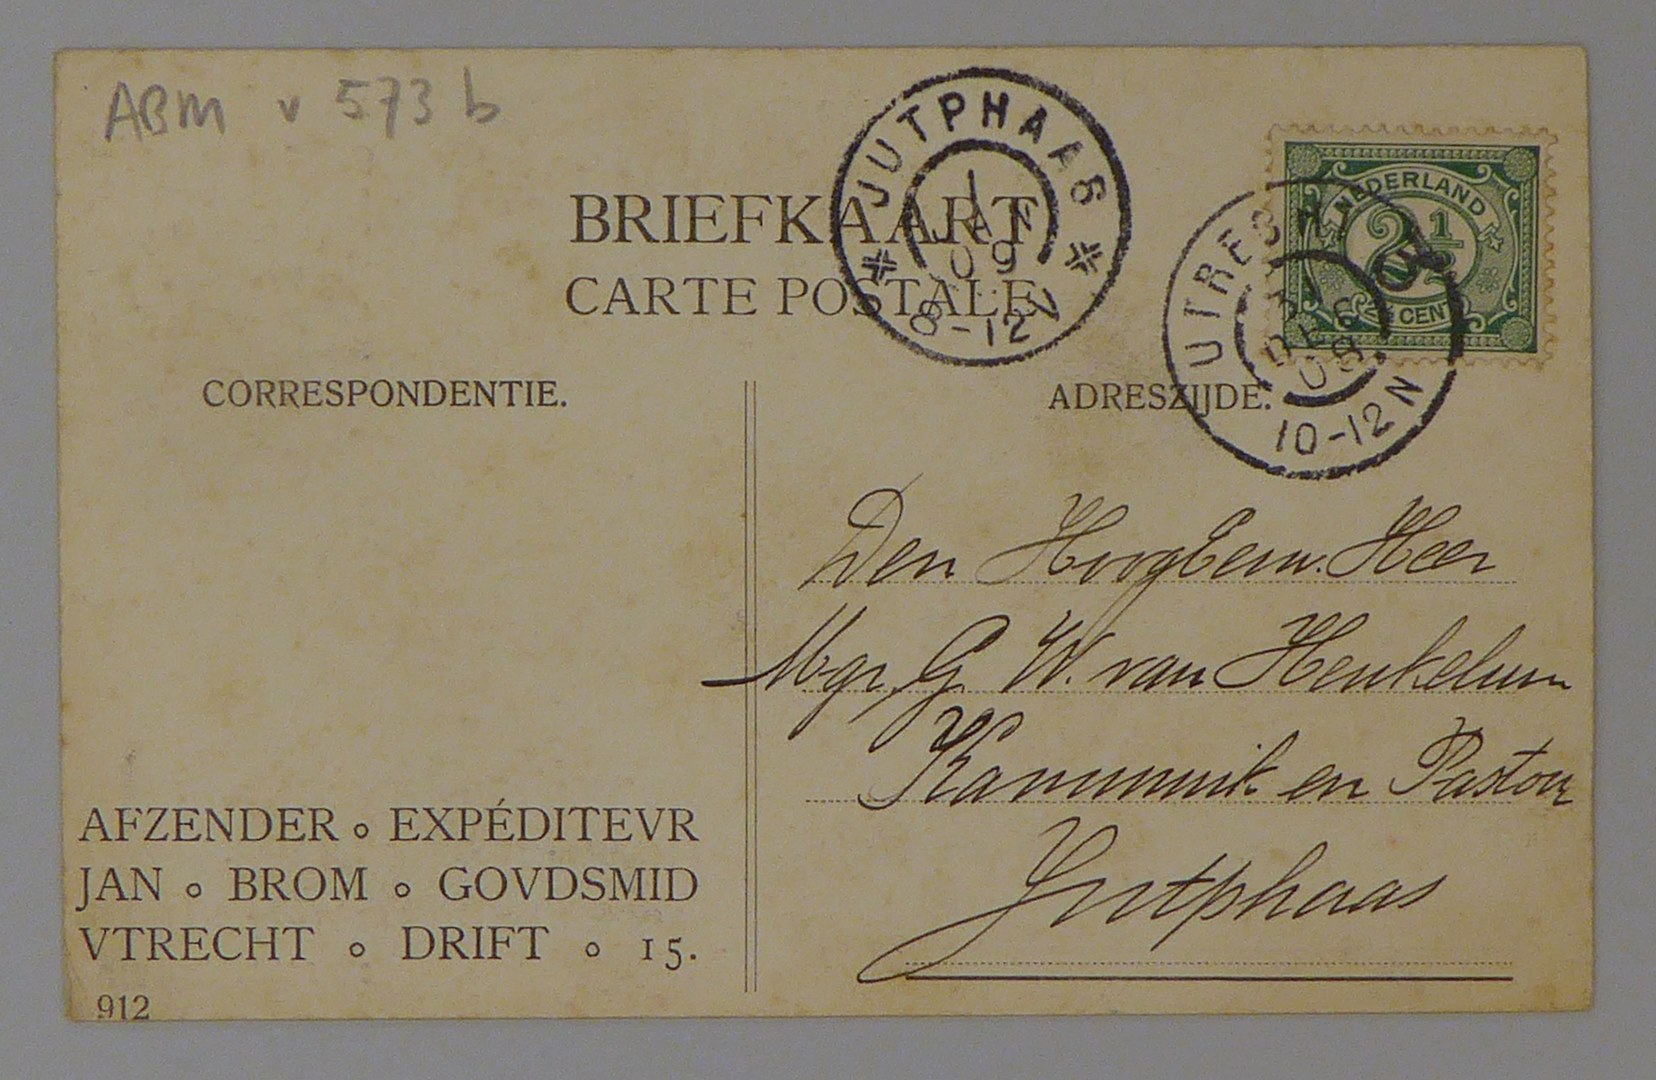 ABM v 573 b
JUTPHAAS
1 JAN 09
8-12V
NEDERLAND
2½
2½ CENT
UTRECHT
31 DEC 08
10-12N
BRIEFKAART
CARTE POSTALE
CORRESPONDENTIE.
ADRESZIJDE.
Den HoogEerw. Heer
Mgr G. W. van Heukelum
Kanunnik en Pastoor
Jutphaas
AFZENDER o EXPÉDITEVR
JAN o BROM o GOVDSMID
VTRECHT o DRIFT o 15.
912